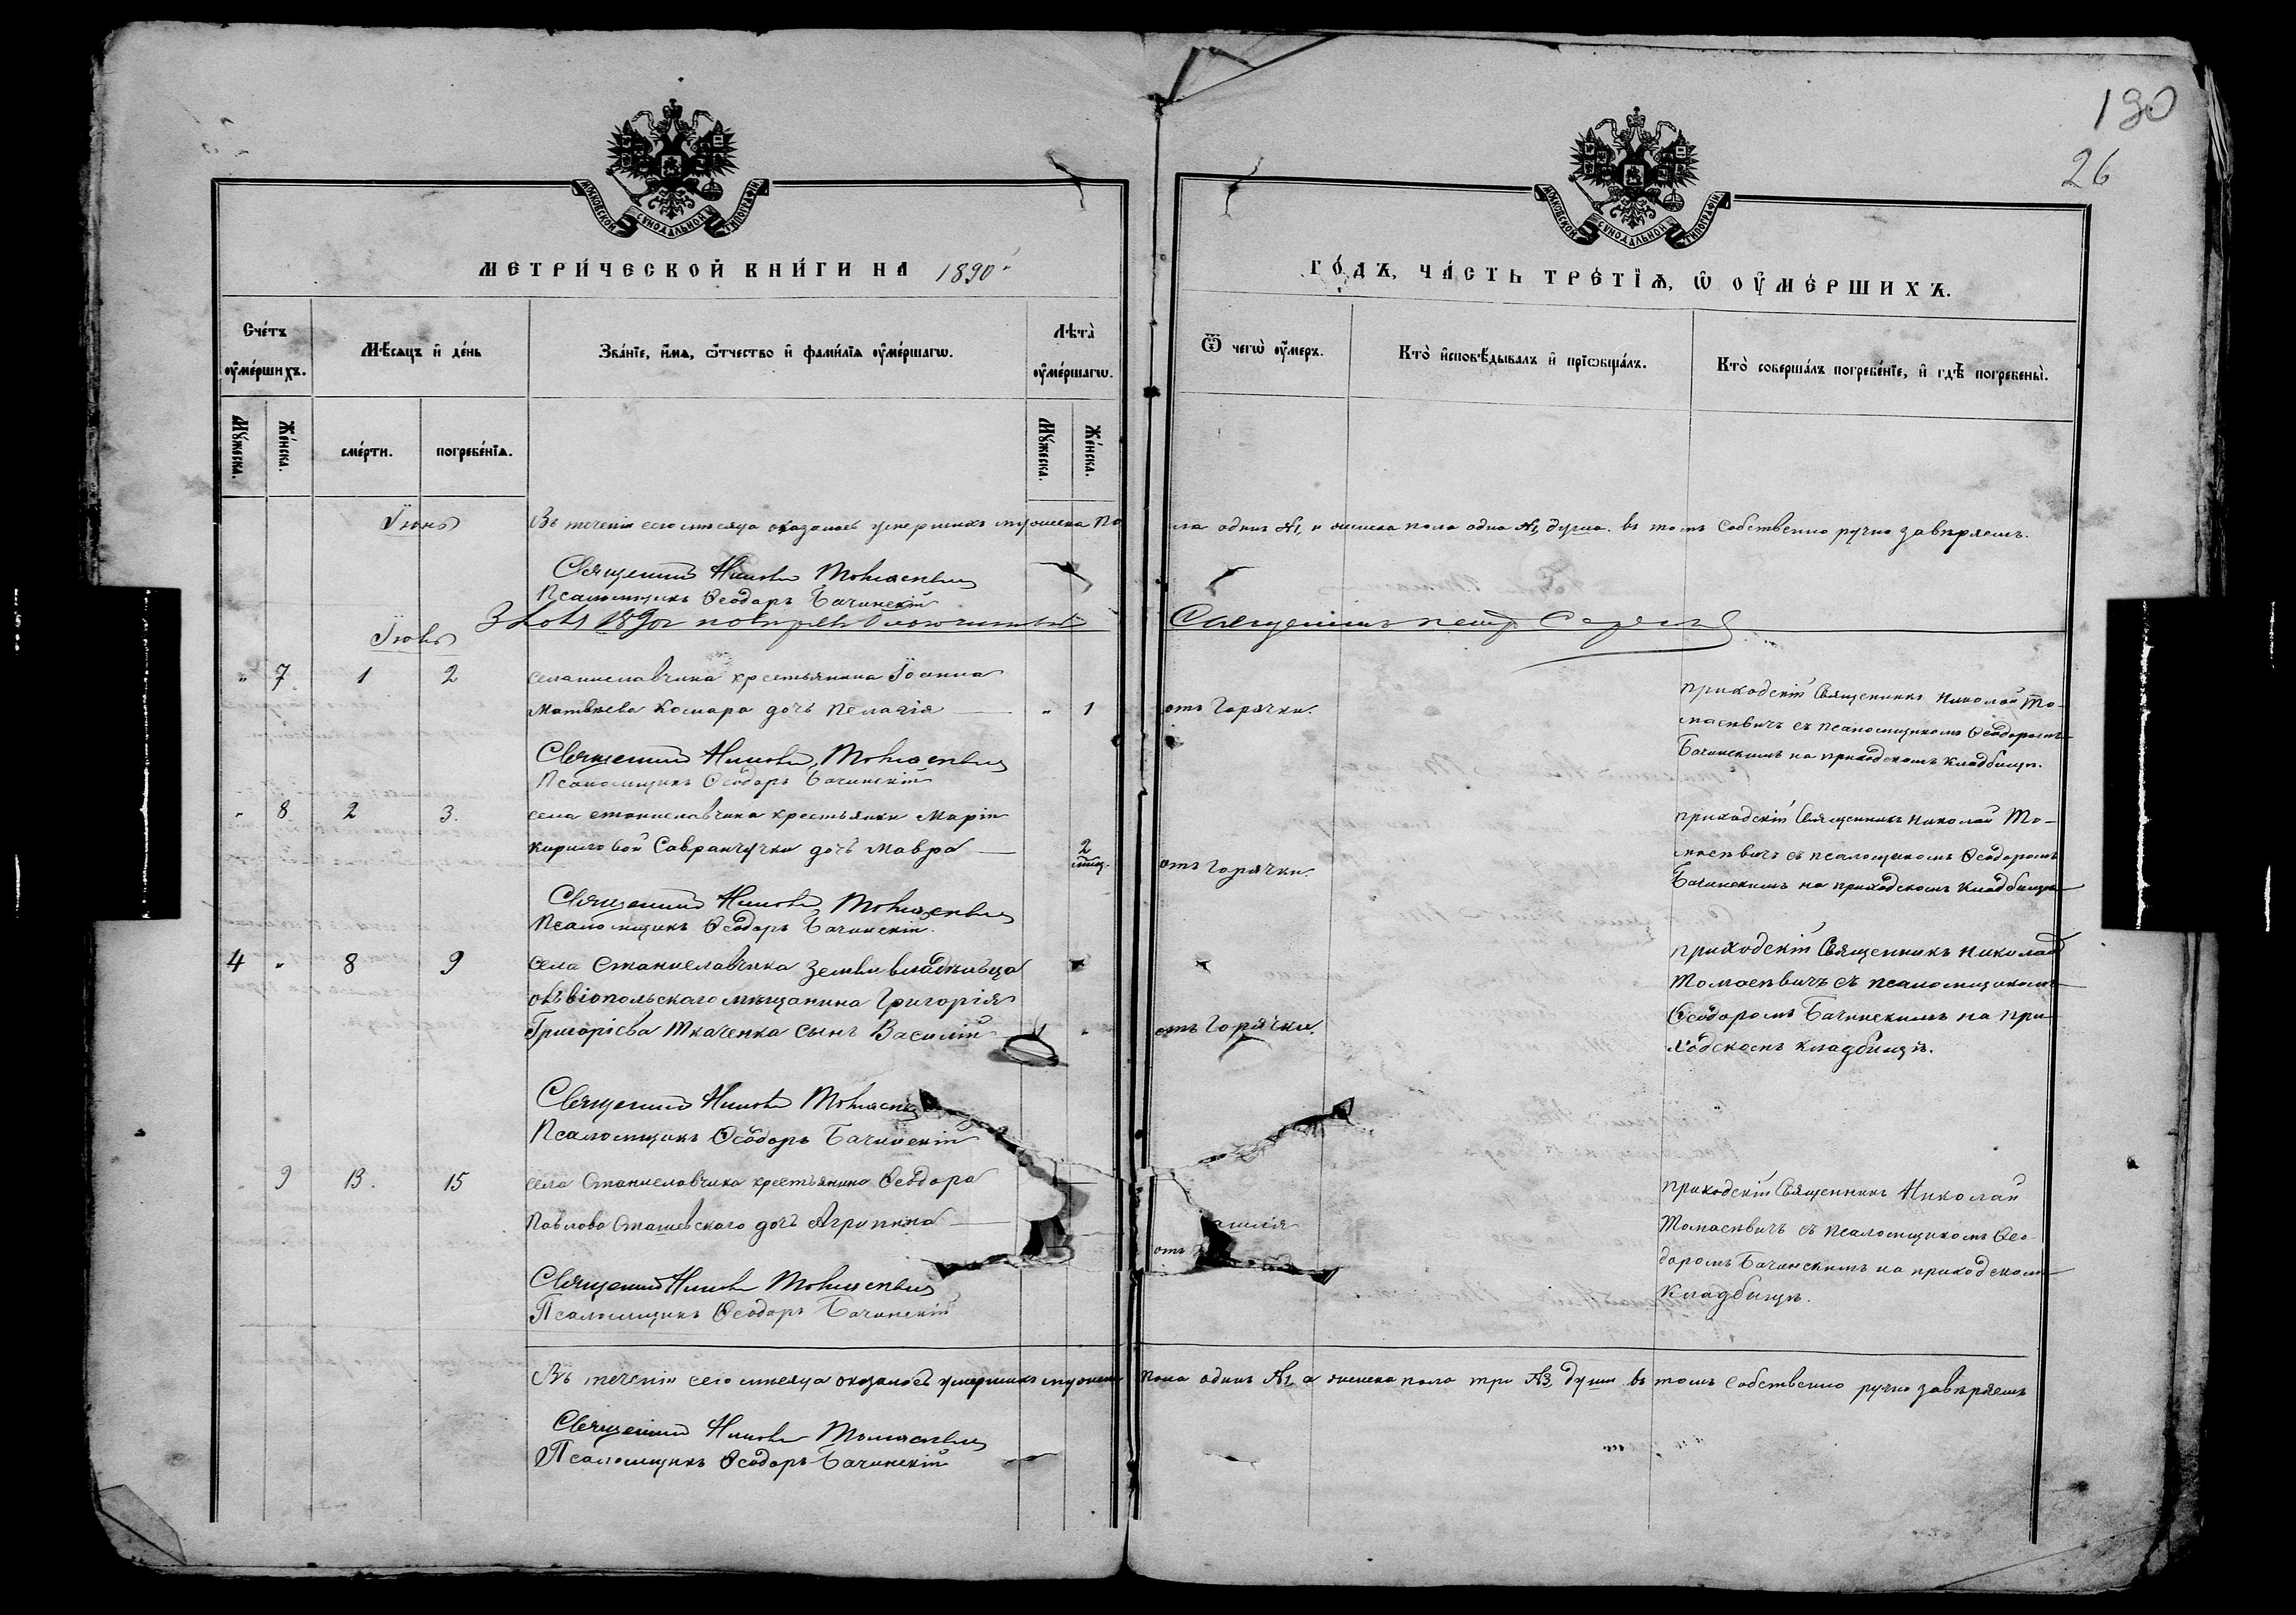 190
26
МОСКОВСКОЙ СѴНОДАЛЬНОЙ ТИПОГРАФІИ
МОСКОВСКОЙ СѴНОДАЛЬНОЙ ТИПОГРАФІИ
МЕТРИ́ЧЕСКОЙ КНИ́ГИ НА 1890
ГО́ДЪ, ЧА́СТЬ ТРЕ́ТІѦ, Ѡ ОУ҆МЕ́РШИХЪ.
Сче́тъ оу҆ме́ршихъ.
Мѣ́сяцъ и҆ де́нь
Зва́нїе, и҆́мѧ, ѻ҆́тчество и҆ фами́лїѧ оу҆ме́ршагѡ.
Лѣта̀ оу҆ме́ршагѡ.
Ѿ чегѡ̀ оу҆́меръ.
Кто̀ и҆сповѣ́дывалъ и҆ прїѡбща́лъ.
Кто̀ соверша́лъ погребе́нїе, и҆ гдѣ̀ погребены̀.
Мꙋ́жеска.
Же́нска.
сме́рти.
погребе́нїѧ.
Мꙋ́жеска.
Же́нска.
Іюнь
Въ теченіи сего мѣсяца оказалось умершихъ мужеска по
ла одинъ №1, и женска пола одна №1, душа. въ томъ собственно ручно завѣряемъ.
Священникъ Николай Томасевичъ
Псаломщикъ Ѳеодоръ Бачинскій
1890г
Священникъ
Іюль
" 7 1 2
села Станиславчика крестьянина Іоанна
Матвѣева Комара дочь Пелагія " 1
отъ горячки.
приходскій Священникъ Николай То-
масевичъ съ псаломщикомъ Ѳеодоромъ
Бачинскимъ на приходскомъ кладбищѣ.
Священникъ Николай Томасевичъ
Псаломщикъ Ѳеодоръ Бачинскій
" 8 2 3.
села Станиславчика крестьянки Маріи
Кириловой Савранчучки дочь Мавра 2 мѣсц.
отъ горячки.
приходскій Священникъ Николай То-
масевичъ съ псаломщикомъ Ѳеодоромъ
Бачинскимъ на приходскомъ кладбищѣ
Священникъ Николай Томасевичъ
Псаломщикъ Ѳеодоръ Бачинскій.
4 " 8 9
села Станиславчика землевладѣльца
овѣіопольскаго мѣщанина Григорія
Григоріева Ткаченка сынъ Василій "
отъ горячки.
приходскій Священникъ Николай
Томасевичъ съ псаломщикомъ
Ѳеодоромъ Бачинскимъ на при-
ходскомъ кладбищѣ.
Священникъ Николай Томасевичъ
Псаломщикъ Ѳеодоръ Бачинскій
" 9 13. 15
села Станиславчика крестьянина Ѳеодора
Павлова Сташевскаго дочь Агрипина
отъ
приходскій Священникъ Николай
Томасевичъ съ псаломщикомъ Ѳео-
доромъ Бачинскимъ на приходскомъ
кладбищѣ.
Священникъ Николай Томасевичъ
Псаломщикъ Ѳеодоръ Бачинскій
Въ теченіи сего мѣсяца оказалось умершихъ мужеска
пола одинъ №1, а женска пола три №3, души въ томъ собственно ручно завѣряемъ
Священникъ Николай Томасевичъ
Псаломщикъ Ѳеодоръ Бачинскій